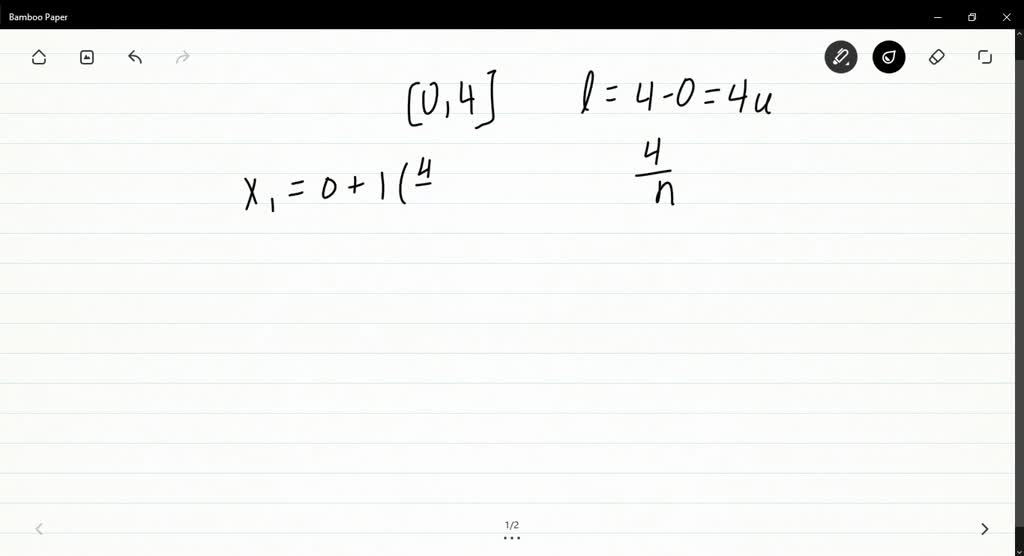 Bamboo Paper
[0,4] l = 4-0 = 4u
x₁ = 0 + 1 ( 4/ 4/n
1/2